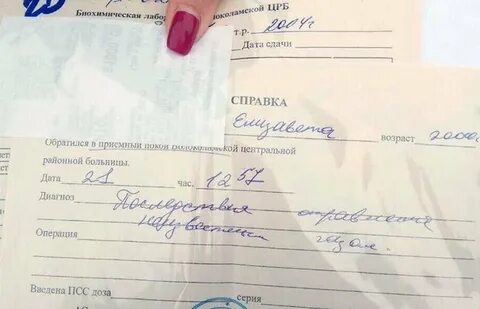 20
Биохимическая лабо локоламской ЦРБ
т.р. 2004г
Дата сдачи
СПРАВКА
Елизавета возраст 2000
Обратился в приемный покой Волоколамской центральной
районной больницы.
Дата 21 час. 12 57
Диагноз Последствия отравления
неизвестным газом.
Операция
Введена ПСС доза серия